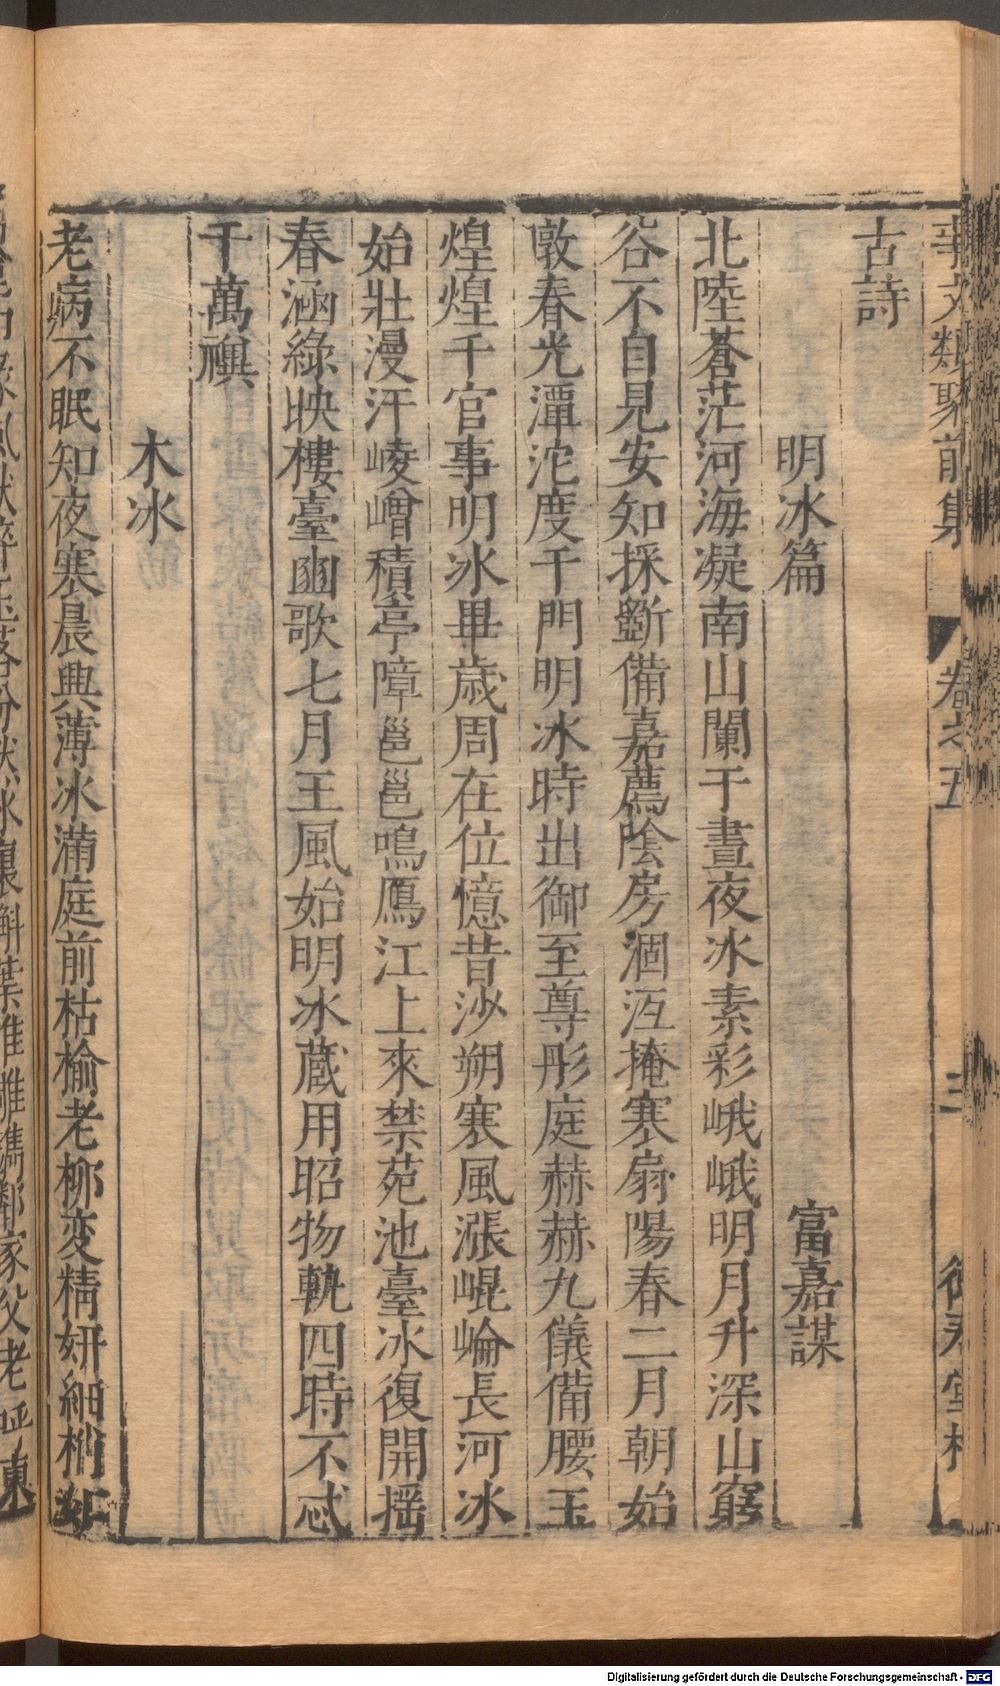 事文類聚前集 卷之五 三
古詩
明冰篇 富嘉謀
北陸蒼茫河海凝南山闌干晝夜冰素彩峨峨明月升深山窮
谷不自見安知採斲備嘉薦陰房涸沍掩寒扇陽春二月朝始
暾春光潭沱度千門明冰時出御至尊彤庭赫赫九儀備腰玉
煌煌千官事明冰畢歲周在位憶昔沙朔寒風漲崐崘長河冰
始壯漫汗崚嶒積亭障嗈嗈鳴鴈江上來禁苑池臺冰復開搖
春涵綠映樓臺豳歌七月王風始明冰藏用昭物軌四時不忒
千萬禩
木冰
老病不眠知夜寒晨興薄冰滿庭前枯榆老柳変精妍細梢如
Digitalisierung gefördert durch die Deutsche Forschungsgemeinschaft - DFG